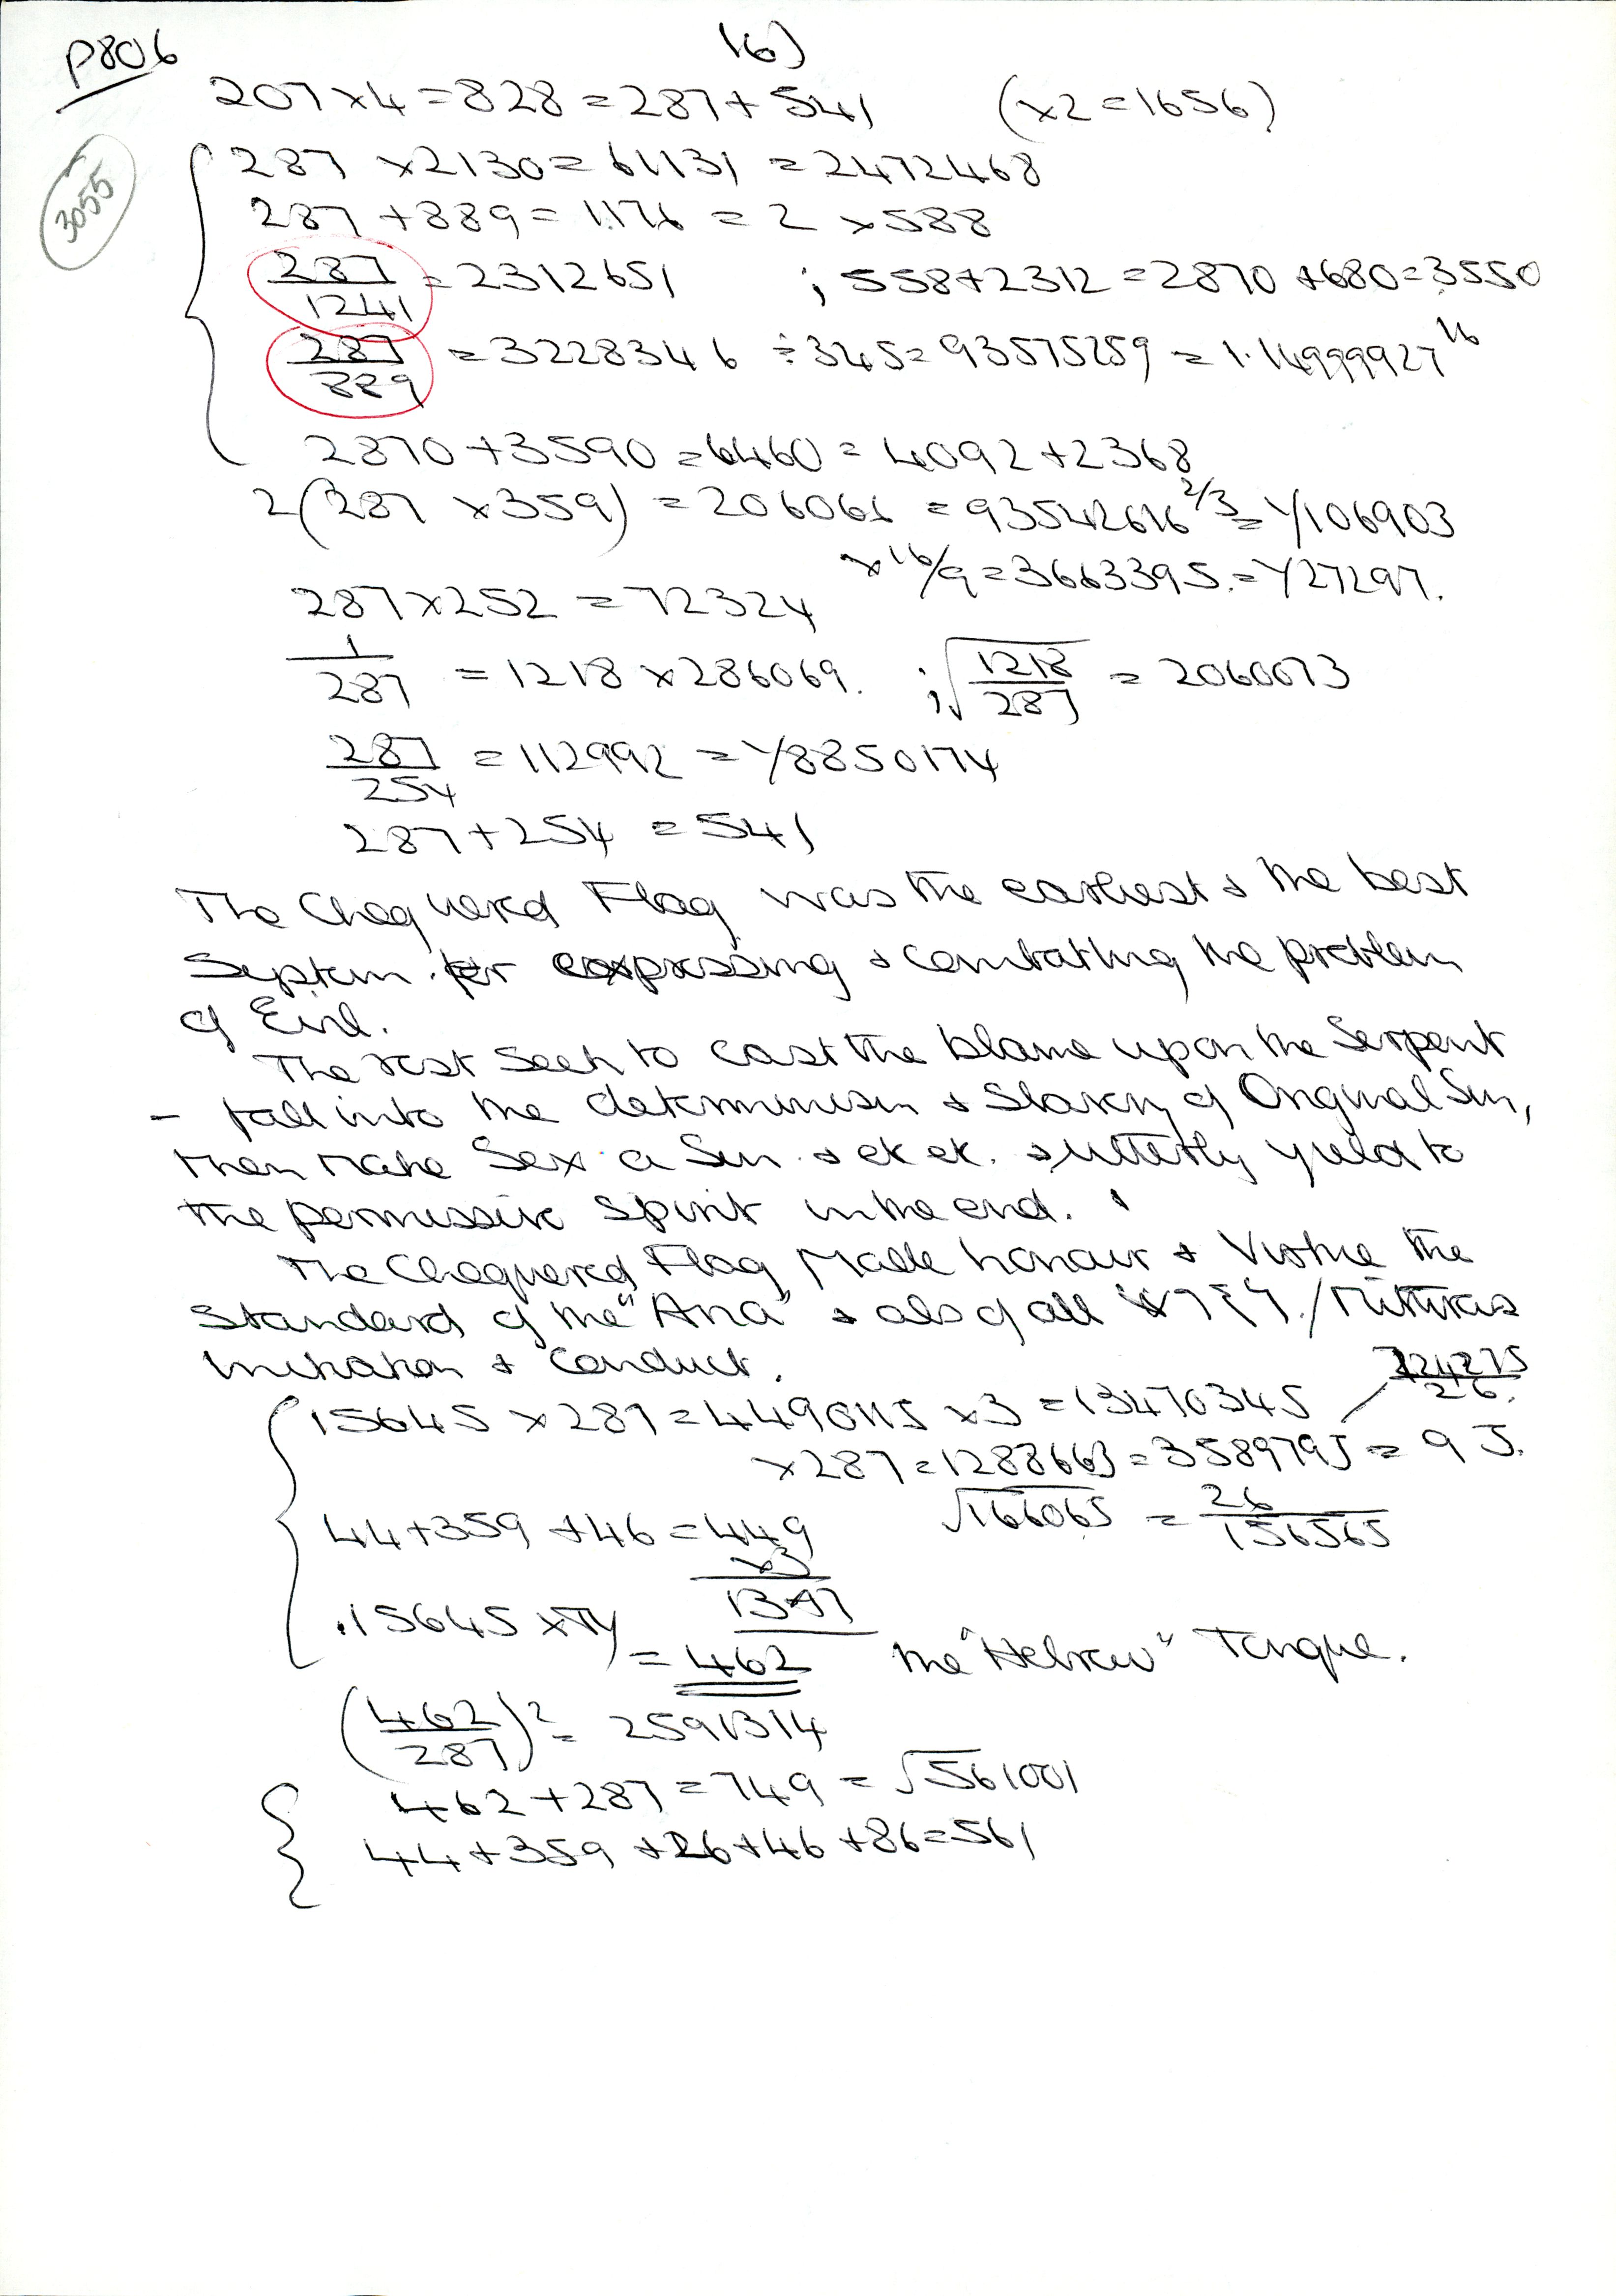 P806
16)
207 x 4 = 828 = 287 + 541 (x2 = 1656)
3055
287 x 2130 = 61131 = 2472468
287 + 889 = 1176 = 2 x 588
287/1241 = 2312651 ; 558 + 2312 = 2870 + 680 = 3550
287/889 = 3228346 ÷ 345 = 93575259 = 1.14999927^16
2870 + 3590 = 6460 = 4092 + 2368
2(287 x 359) = 206066 = 93542616^2/3 = 1/106903
x 16/9 = 3663395. = 1/27297.
287 x 252 = 72324
1/287 = 1218 x 286069. ; √1218/287 = 2060073
287/254 = 112992 = 1/8850174
287 + 254 = 541
The Chequered Flag was the earliest & the best
System for expressing & combatting the problem
of Evil.
The rest seek to cast the blame upon the Serpent
- fall into the determinism & Slavery of Original Sin,
then make Sex a Sin & etc etc. & utterly yield to
the permissive spirit in the end.
The Chequered Flag Made honour & Virtue the
Standard of the "Ana" & also of all / Mithras
initiation & conduct.
15645 x 287 = 4490115 x 3 = 13470345 / 224275/26.
x 287 = 1288663 = 358979J = 9 J.
44 + 359 + 46 = 449 √166065 = 26/156565
x3
1347
.15645 x = 462 the "Hebrew" Tongue.
(462/287)² = 2591314
462 + 287 = 749 = √561001
44 + 359 + 26 + 46 + 86 = 561